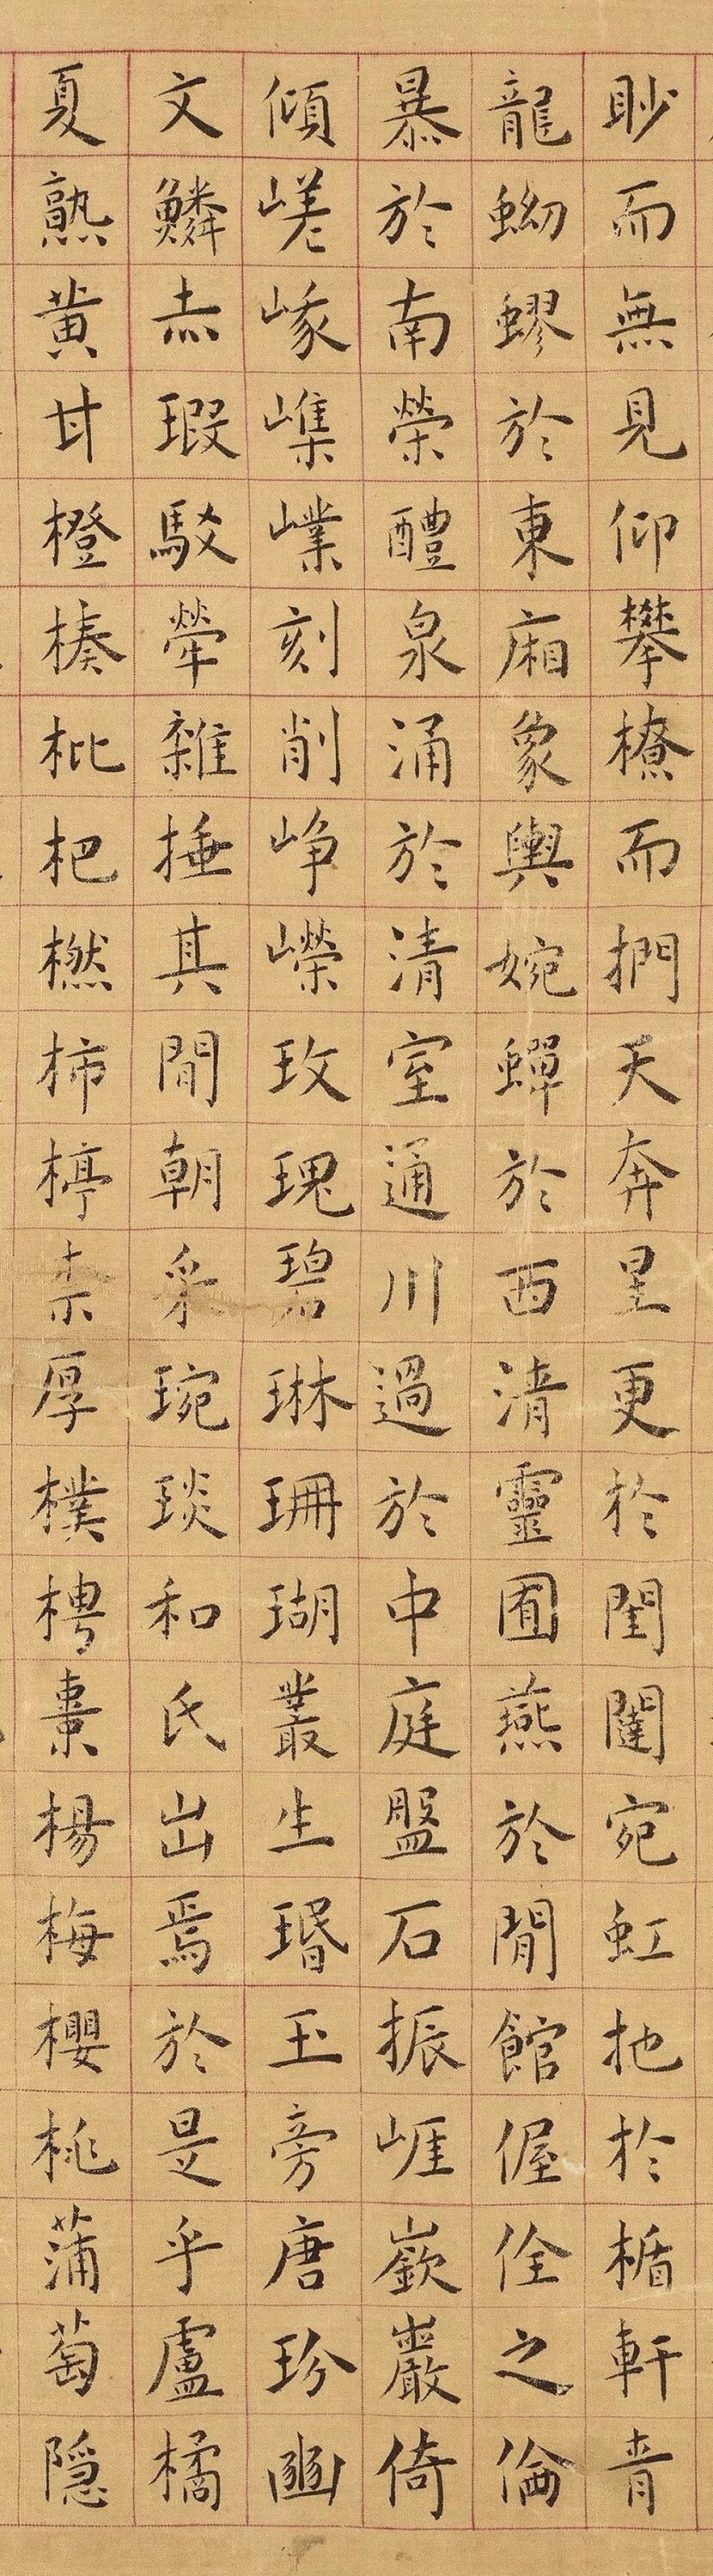 眇而無見仰攀橑而捫天奔星更於閨闥宛虹扡於楯軒青
龍蚴蟉於東廂象輿婉蟬於西清靈圄燕於閒館偓佺之倫
暴於南榮醴泉涌於清室通川過於中庭盤石振崕嶔巖倚
傾嵯峩嶫刻削崢嶸玫瑰碧琳珊瑚叢生瑉玉旁唐玢豳
文鱗赤瑕駁犖雜捶其間朝采琬琰和氏出焉於是乎盧橘
夏熟黃甘橙楱枇杷橪柿楟柰厚樸梬棗楊梅櫻桃蒲萄隱